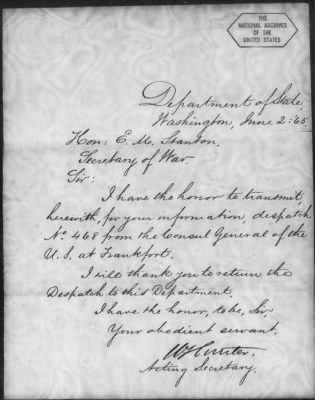 THE
NATIONAL ARCHIVES
OF THE
UNITED STATES
Department of State,
Washington, June 2: '65.
Hon: E. M. Stanton,
Secretary of War.
Sir:
I have the honor to transmit,
herewith, for your information, despatch
No. 468 from the Consul General of the
U. S. at Frankfort.
I will thank you to return the
Despatch to this Department.
I have the honor, to be, Sir,
Your obedient servant.
W Hunter,
Acting Secretary.